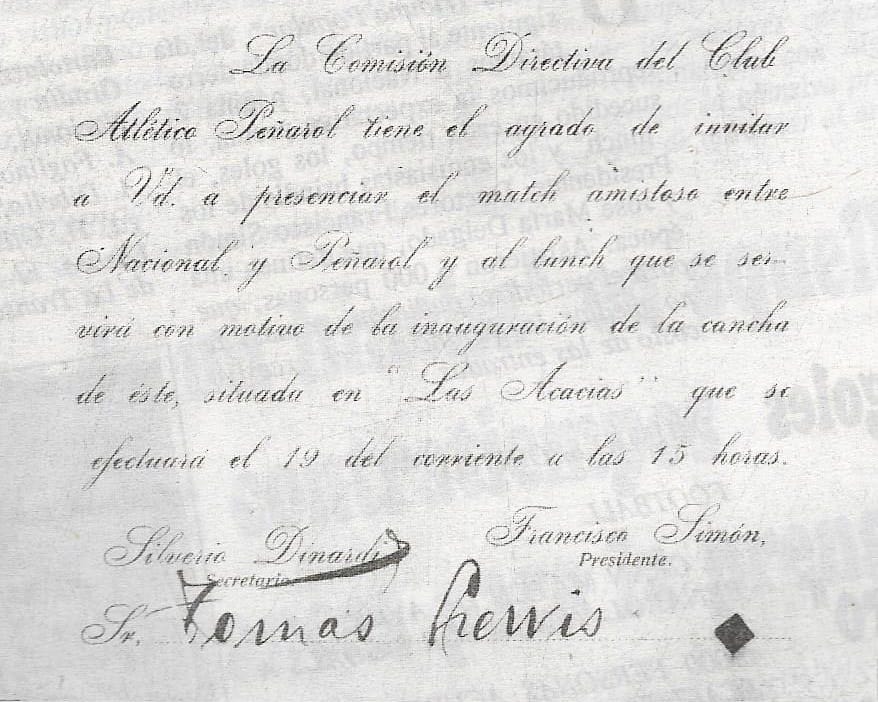 La Comisión Directiva del Club
Atlético Peñarol tiene el agrado de invitar
a Vd. a presenciar el match amistoso entre
Nacional y Peñarol y al lunch que se ser-
virá con motivo de la inauguración de la cancha
de éste, situada en "Las Acacias" que se
efectuará el 19 del corriente a las 15 horas.
Silverio Dinardi Francisco Simón,
Secretario Presidente.
Sr. Tomás